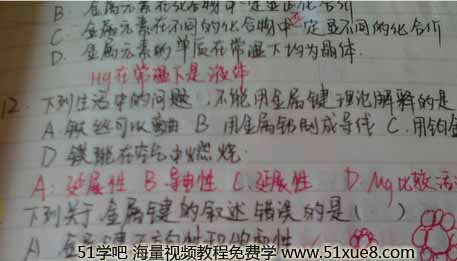 B. 金属元素在化合物中一定显正化合价
C. 金属元素在不同的化合物中一定显不同的化合价
D. 金属元素的单质在常温下均为晶体.
Hg在常温下是液体
12. 下列生活中的问题,不能用金属键理论解释的是
A. 铁丝可以弯曲 B. 用金属铝制成导线 C. 用铂金
D 镁能在空气中燃烧.
A: 延展性 B 导电性 C. 延展性 D. Mg比较活
下列关于金属键的叙述错误的是( )
A. 金属键
51学吧 海量视频教程免费学 www.51xue8.com